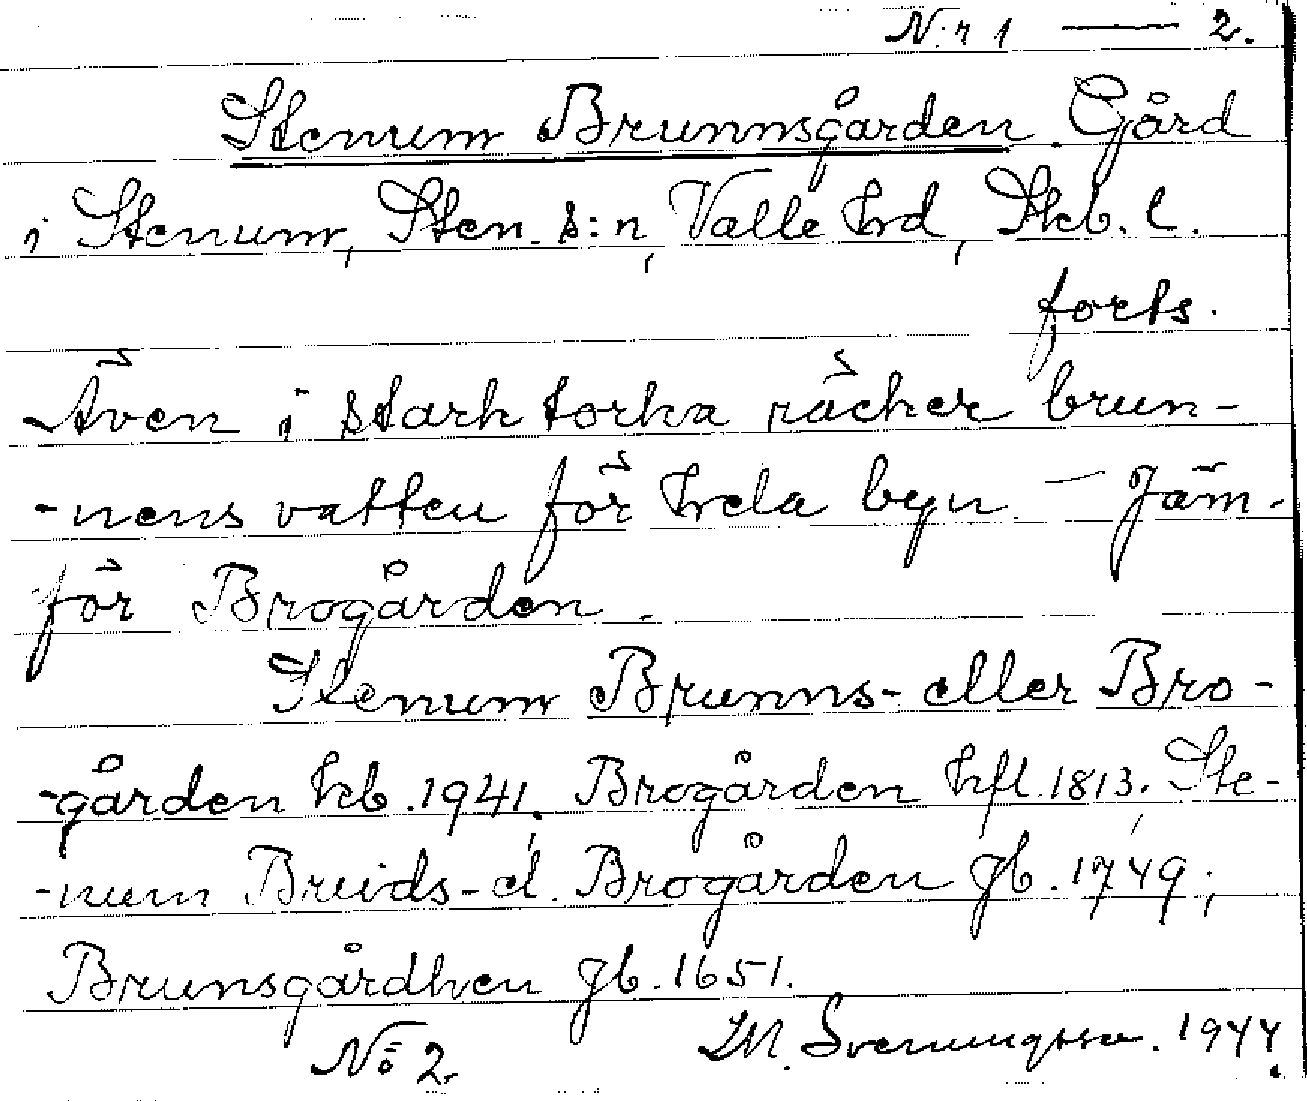 N:r 1 — 2.
Stenum Brunnsgården. Gård
i Stenum, Sten. s:n, Valle hrd, Skb. l.
forts.
Även i stark torka räcker brun-
-nens vatten för hela byn. — Jäm-
för Brogården.
Stenum Brunns- eller Bro-
-gården kb. 1941. Brogården hfl. 1813. Ste-
-num Bruids- el. Brogården Jb. 1749;
Brunsgårdhen Jb. 1651.
No 2. M. Svenungsson. 1944.